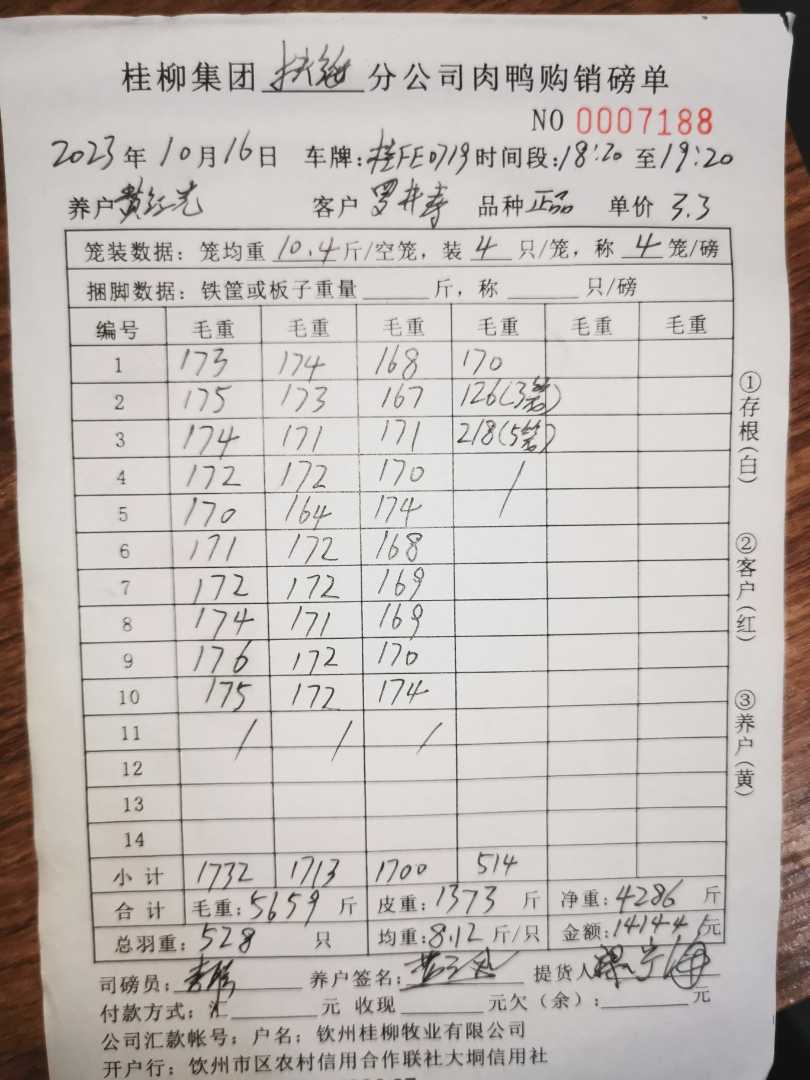 桂柳集团 扶绥 分公司肉鸭购销磅单
NO 0007188
2023年10月16日 车牌:桂FE0719 时间段:18:20 至19:20
养户 黄 客户 罗 寿 品种 正品 单价 3.3
笼装数据:笼均重 10.4 斤/空笼,装 4 只/笼,称 4 笼/磅
捆脚数据:铁筐或板子重量 斤,称 只/磅
编号 毛重 毛重 毛重 毛重 毛重 毛重
1 173 174 168 170
2 175 173 167 126(3笼)
3 174 171 171 218(5笼)
4 172 172 170 /
5 170 164 174
6 171 172 168
7 172 172 169
8 174 171 169
9 176 172 170
10 175 172 174
11 / / /
12
13
14
小计 1732 1713 1700 514
合计 毛重:5659 斤 皮重:1373 斤 净重:4286 斤
总羽重:528 只 均重:8.12 斤/只 金额:14144 元
司磅员: 养户签名: 提货人
付款方式:汇 元 收现 元欠(余): 元
公司汇款帐号:户名:钦州桂柳牧业有限公司
开户行:钦州市区农村信用合作联社大垌信用社
①存根(白)
②客户(红)
③养户(黄)